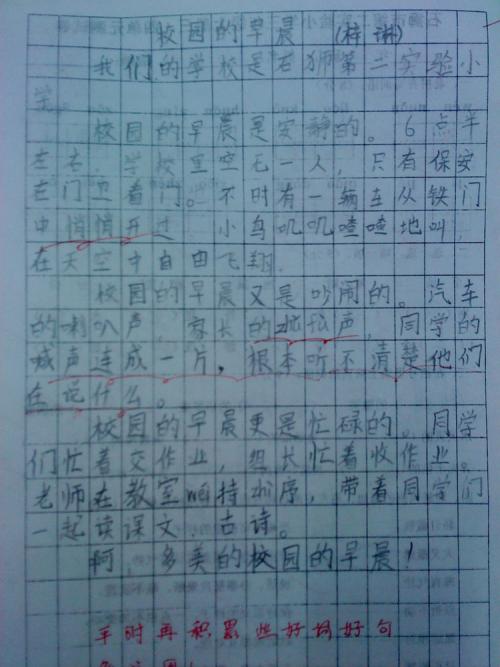 校园的早晨 (梓琳)
我们的学校是石狮第二实验小
学。
校园的早晨是安静的。6点半
左右，学校里空无一人，只有保安
在门卫看门。不时有一辆车从铁门
中悄悄开过，小鸟叽叽喳喳地叫，
在天空中自由飞翔.
校园的早晨又是吵闹的。汽车
的喇叭声，家长的声，同学的
喊声连成一片，根本听不清楚他们
在说什么。
校园的早晨更是忙碌的。同学
们忙着交作业，组长忙着收作业。
老师在教室wéi持zhì序，带着同学们
一起读课文、古诗。
啊，多美的校园的早晨！
平时再积累些好词好句